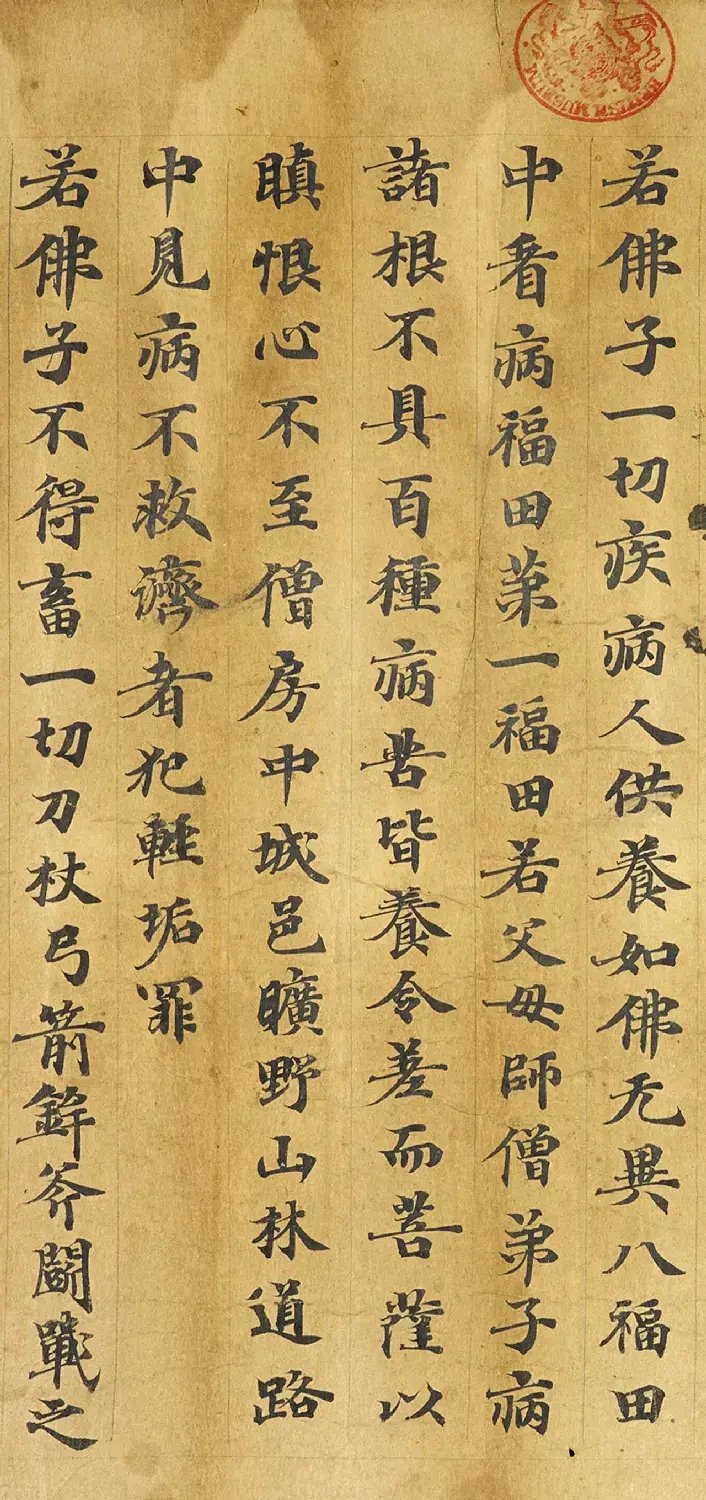 若佛子一切疾病人供養如佛无異八福田
中看病福田苐一福田若父母師僧弟子病
諸根不具百種病苦皆養令差而菩薩以
瞋恨心不至僧房中城邑曠野山林道路
中見病不救濟者犯輕垢罪
若佛子不得畜一切刀杖弓箭鉾斧鬪戰之
BRITISH MUSEUM